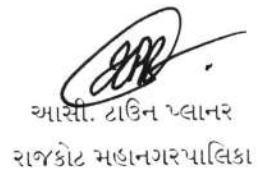 આસી. ટાઉન પ્લાનર
રાજકોટ મહાનગરપાલિકા